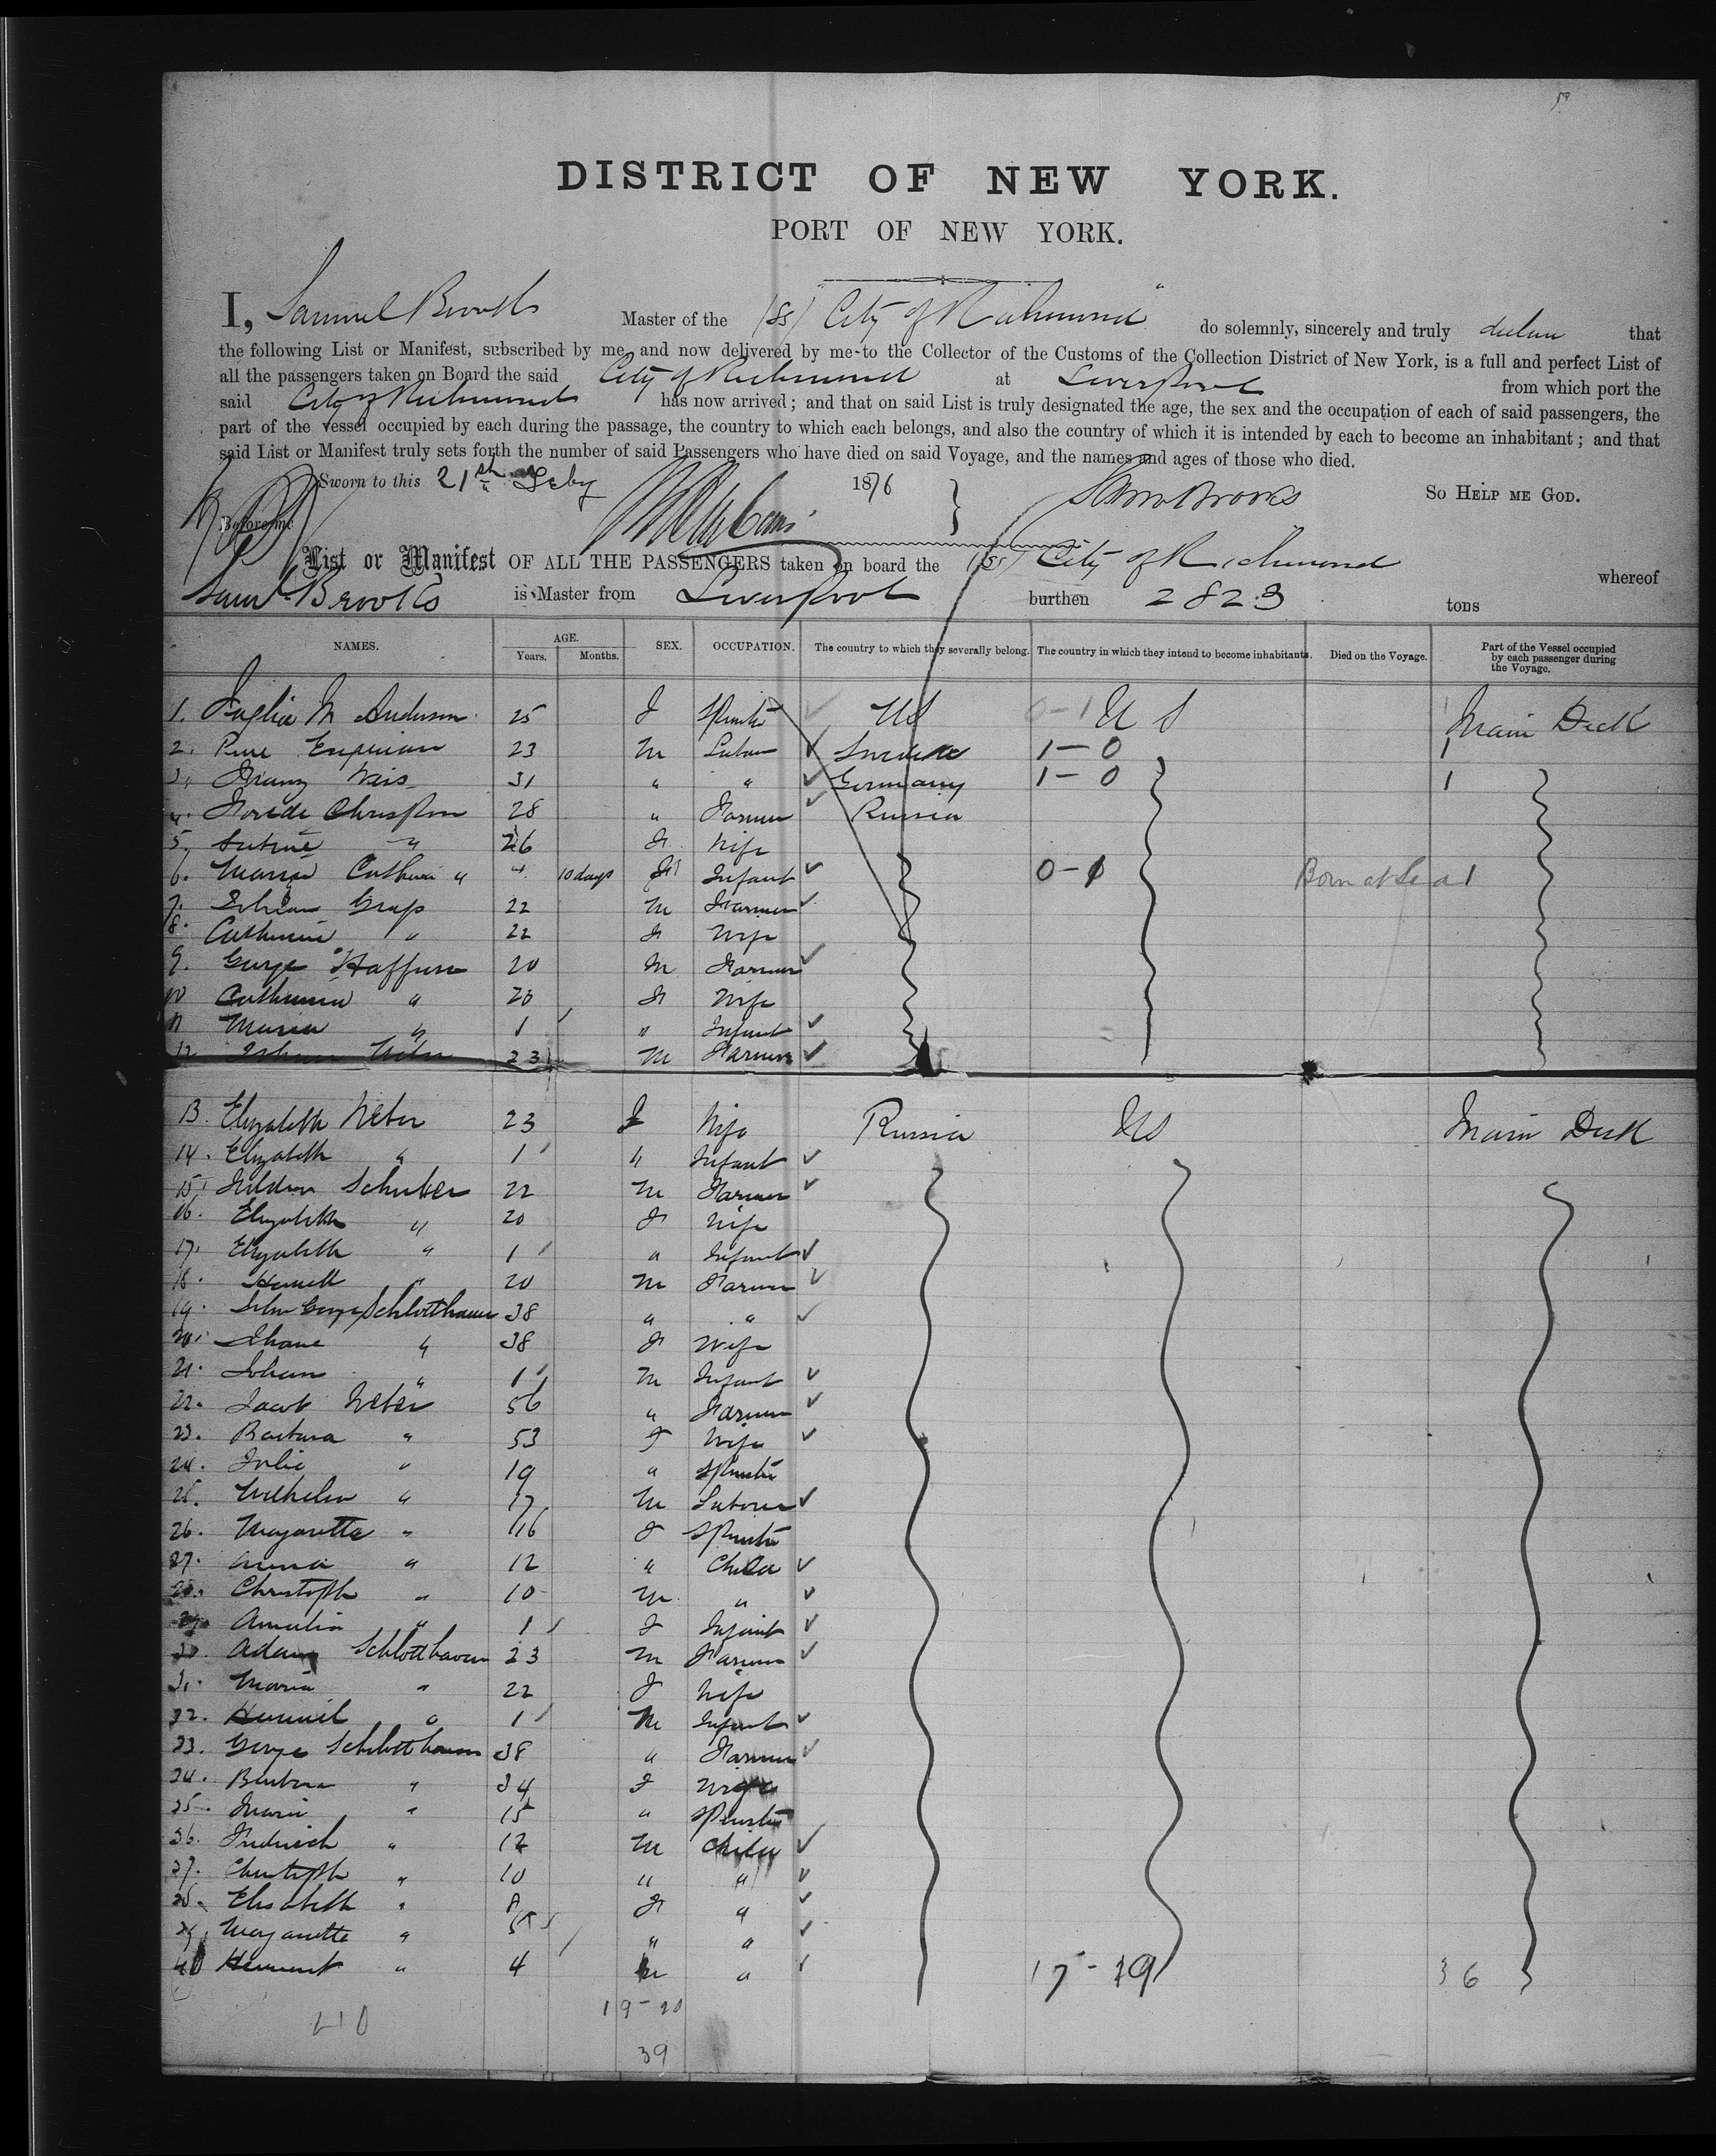 DISTRICT OF NEW YORK.
PORT OF NEW YORK.
I, Samuel Brooks Master of the (SS) City of Richmond do solemnly, sincerely and truly declare that
the following List or Manifest, subscribed by me, and now delivered by me to the Collector of the Customs of the Collection District of New York, is a full and perfect List of
all the passengers taken on Board the said City of Richmond at Liverpool from which port the
said City of Richmond has now arrived; and that on said List is truly designated the age, the sex and the occupation of each of said passengers, the
part of the vessel occupied by each during the passage, the country to which each belongs, and also the country of which it is intended by each to become an inhabitant; and that
said List or Manifest truly sets forth the number of said Passengers who have died on said Voyage, and the names and ages of those who died.
Sworn to this 21st Feby 1876 Saml Brooks SO HELP ME GOD.
Before me
List or Manifest OF ALL THE PASSENGERS taken on board the (SS) City of Richmond whereof
Saml Brooks is Master from Liverpool burthen 2823 tons
NAMES. AGE. Years. Months. SEX. OCCUPATION. The country to which they severally belong. The country in which they intend to become inhabitants. Died on the Voyage. Part of the Vessel occupied by each passenger during the Voyage.
1. M Anderson 25 F Spinster US 0-1 U S Main Deck
2. 23 M Labour Sweden 1-0 1
3. Franz Weis 31 " " Germany 1-0 1
4. 28 " Farmer Russia
5. " 26 F Wife
6. Maria " 10 days F Infant 0-1 Born at Sea 1
7. Johan Graf 22 M Farmer
8. Catherine " 22 F Wife
9. George 20 M Farmer
10 Catherina " 20 F Wife
11 Maria " 1 " Infant
12 Johan Weber 23 M Farmer
13. Elizabeth Weber 23 F Wife Russia US Main Deck
14. Elizabeth " 1 " Infant
15. 22 M Farmer
16. Elizabeth " 20 F Wife
17. Elizabeth " 1 " Infant
18. " 20 M Farmer
19. John George Schlotthauer 38 " "
20. " 38 F Wife
21. Johan " 1 M Infant
22. Jacob Weber 56 " Farmer
23. Barbara " 53 F Wife
24. Julie " 19 " Spinster
25. Wilhelm " 17 M Labourer
26. Margaretta " 16 F Spinster
27. Anna " 12 " Child
28. Christoph " 10 M "
29. Amalia " 1 F Infant
30. Adam Schlotthauer 23 M Farmer
31. Maria " 22 F Wife
32. " 1 M Infant
33. George Schlotthauer 38 " Farmer
34. Barbara " 34 F Wife
35. Maria " 15 " Spinster
36. Friedrich " 12 M Child
37. Christoph " 10 " "
38. Elisabeth " 8 F "
39. Margaretta " 5 " "
40 " 4 M " 17-19 36
19-20
39